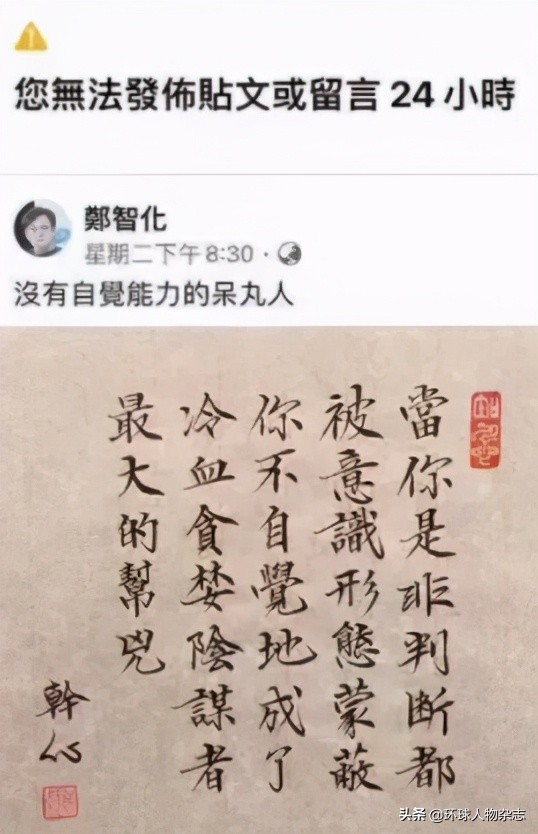 您無法發佈貼文或留言 24 小時
鄭智化
星期二下午 8:30 ·
沒有自覺能力的呆丸人
當你是非判断都
被意識形態蒙蔽
你不自覺地成了
冷血貪婪陰謀者
最大的幫兇
幹
头条 @环球人物杂志